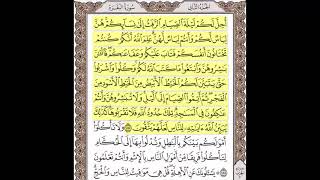 الجزء الثاني
سورة البقرة
أُحِلَّ لَكُمْ لَيْلَةَ ٱلصِّيَامِ ٱلرَّفَثُ إِلَىٰ نِسَآئِكُمْ هُنَّ
لِبَاسٌ لَّكُمْ وَأَنتُمْ لِبَاسٌ لَّهُنَّ عَلِمَ ٱللَّهُ أَنَّكُمْ كُنتُمْ
تَخْتَانُونَ أَنفُسَكُمْ فَتَابَ عَلَيْكُمْ وَعَفَا عَنكُمْ فَٱلْـَٰٔنَ
بَـٰشِرُوهُنَّ وَٱبْتَغُوا۟ مَا كَتَبَ ٱللَّهُ لَكُمْ وَكُلُوا۟ وَٱشْرَبُوا۟
حَتَّىٰ يَتَبَيَّنَ لَكُمُ ٱلْخَيْطُ ٱلْأَبْيَضُ مِنَ ٱلْخَيْطِ ٱلْأَسْوَدِ مِنَ
ٱلْفَجْرِ ثُمَّ أَتِمُّوا۟ ٱلصِّيَامَ إِلَى ٱلَّيْلِ وَلَا تُبَـٰشِرُوهُنَّ وَأَنتُمْ
عَـٰكِفُونَ فِى ٱلْمَسَـٰجِدِ تِلْكَ حُدُودُ ٱللَّهِ فَلَا تَقْرَبُوهَا كَذَٰلِكَ
يُبَيِّنُ ٱللَّهُ ءَايَـٰتِهِۦ لِلنَّاسِ لَعَلَّهُمْ يَتَّقُونَ ١٨٧ وَلَا تَأْكُلُوٓا۟
أَمْوَٰلَكُم بَيْنَكُم بِٱلْبَـٰطِلِ وَتُدْلُوا۟ بِهَآ إِلَى ٱلْحُكَّامِ
لِتَأْكُلُوا۟ فَرِيقًا مِّنْ أَمْوَٰلِ ٱلنَّاسِ بِٱلْإِثْمِ وَأَنتُمْ تَعْلَمُونَ
١٨٨ يَسْـَٔلُونَكَ عَنِ ٱلْأَهِلَّةِ قُلْ هِىَ مَوَٰقِيتُ لِلنَّاسِ وَٱلْحَجِّ